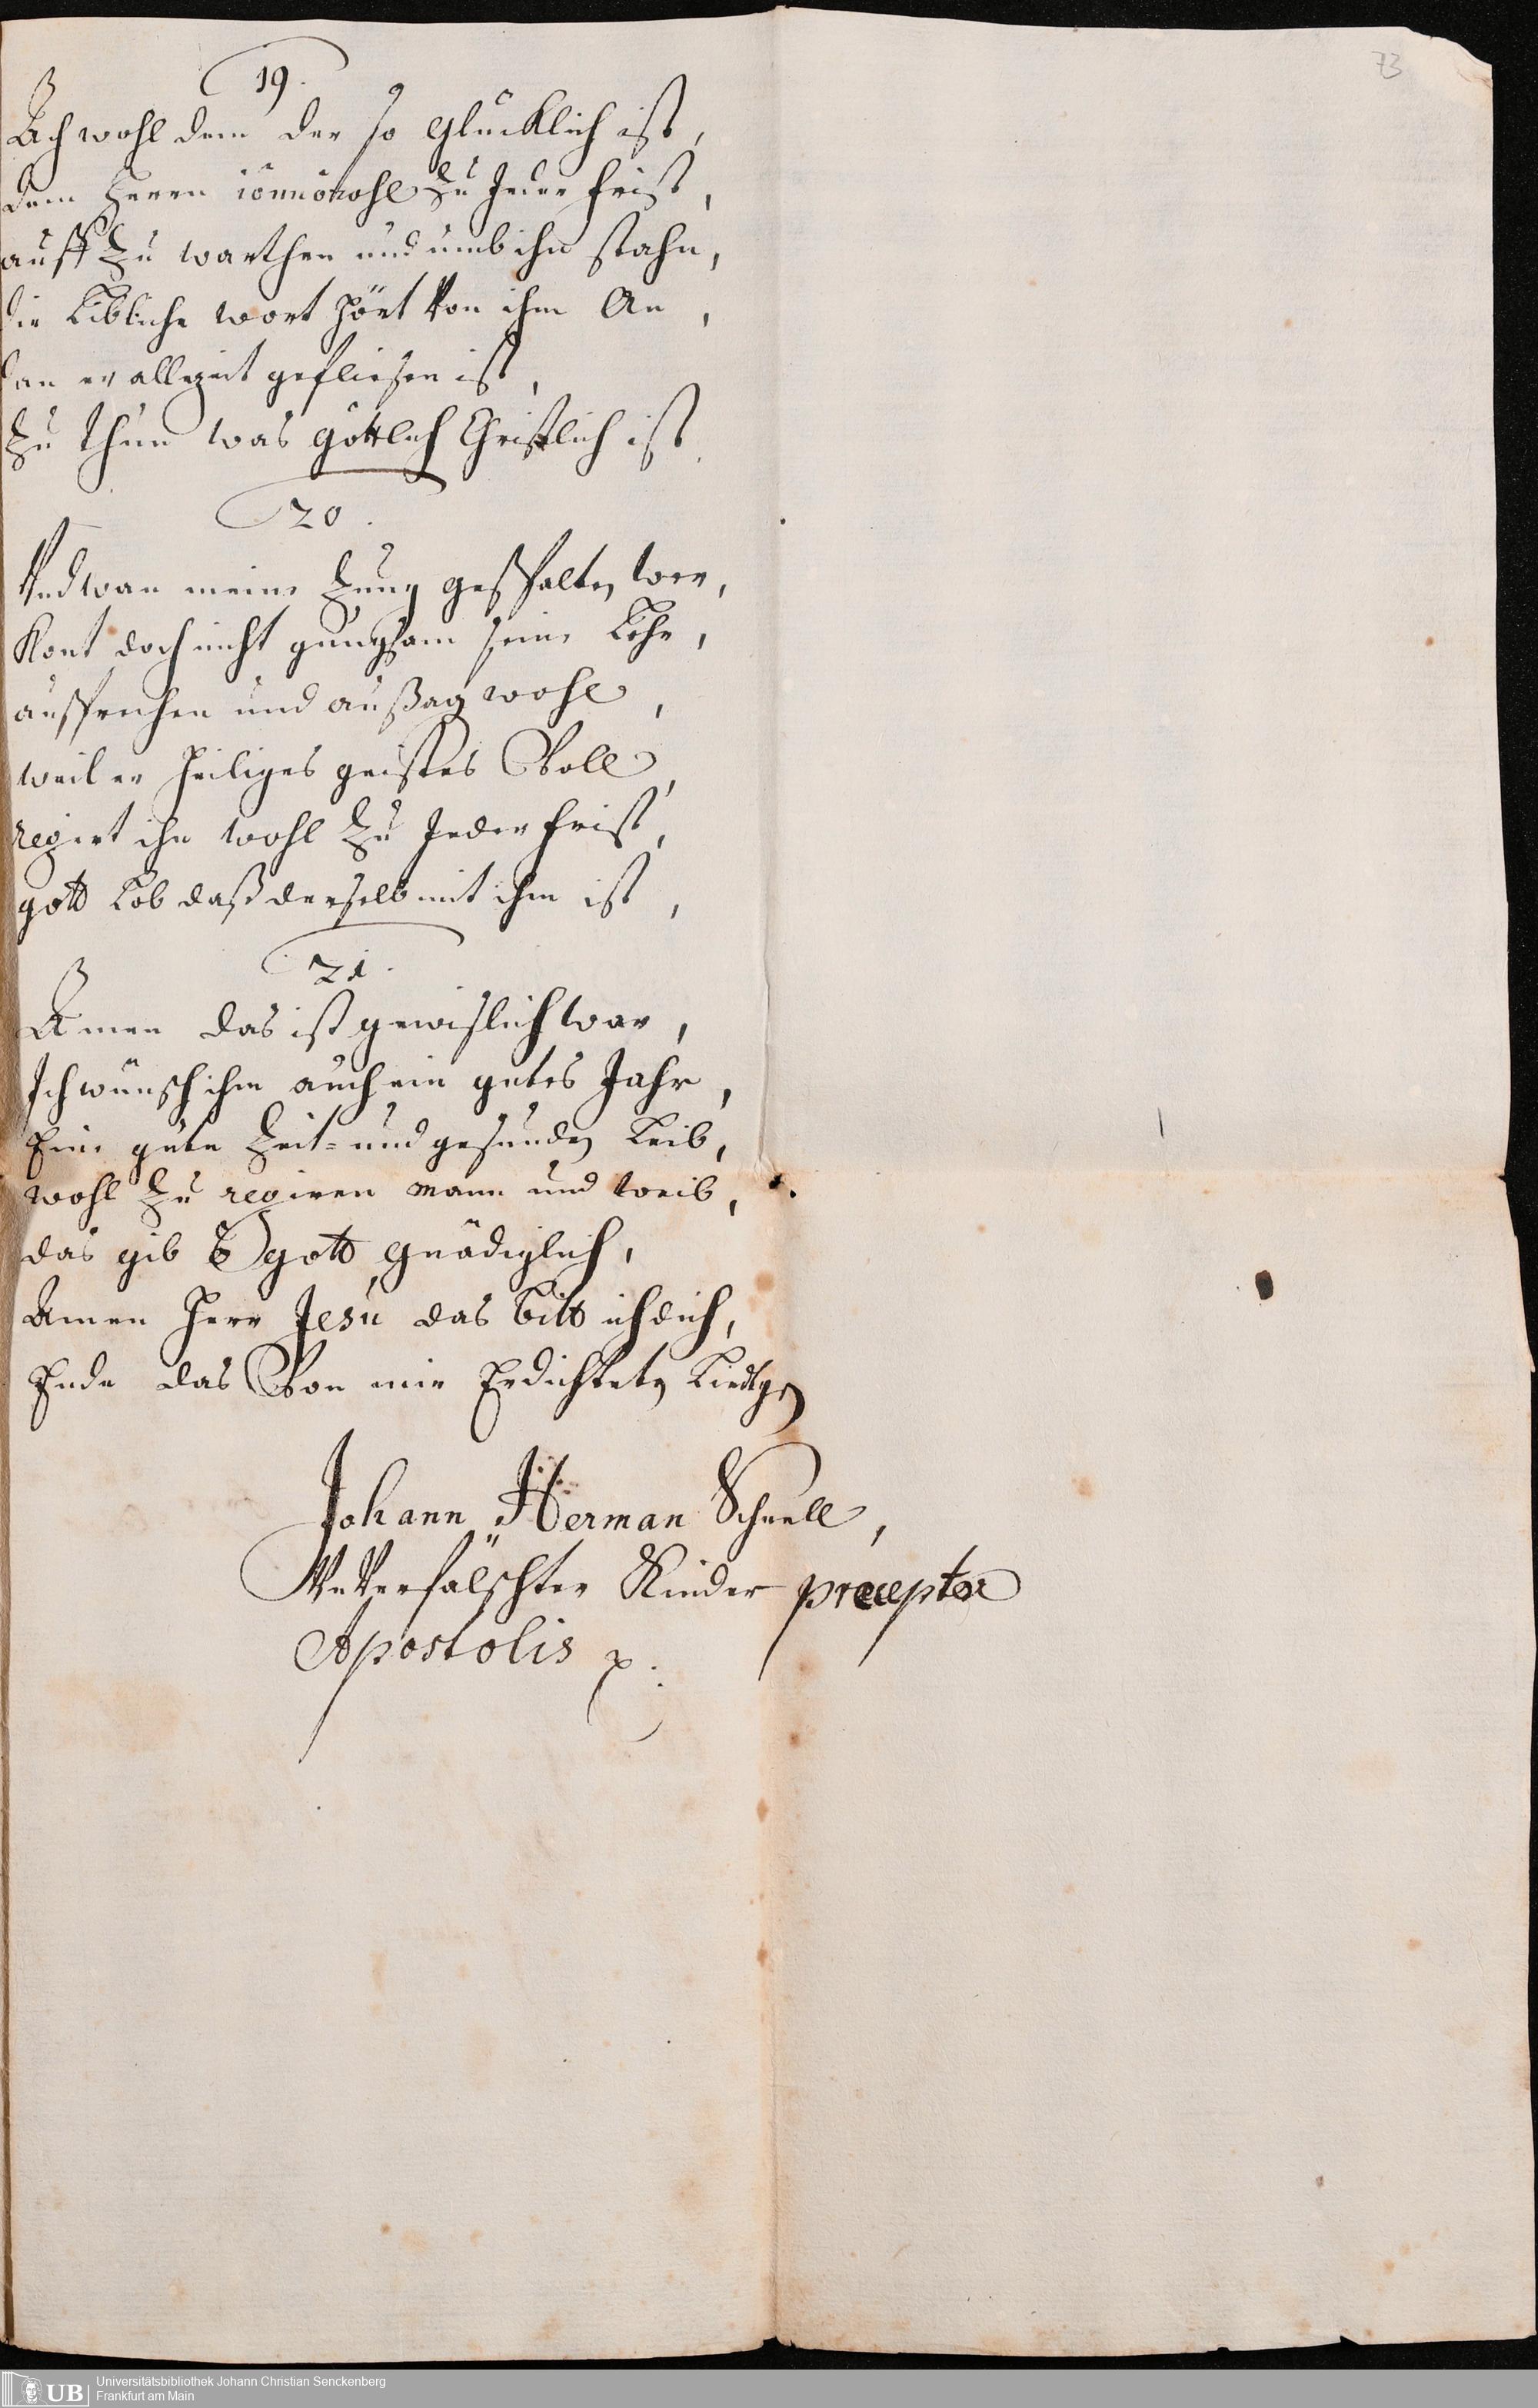 73
19.
Ach wohl dem der so glücklich ist,
Dem Herrn zu Jeder frist,
auff zu warthen und umb ihn stahn,
die Libliche wort hört Von ihm An,
dan er allezeit gefliesen ist,
Zu thun was göttlich Christlich ist.
20.
Und wan meine Zung gespalten wer,
Kont doch nicht gnugsam seine Lehr,
aussprechen und außag wohl,
weil er heiliges geistes Voll,
regirt ihn wohl Zu Jeder frist,
gott Lob daß derselb mit ihm ist,
21.
Amen das ist gewislich war,
Ich wünsch ihm auch ein gutes Jahr,
Eine gute Zeit- und gesunden Leib,
wohl Zu regiren mann und weib,
das gib O gott gnädiglich,
Amen Herr Jesu das bitt ich dich,
Ende das Von mir Erdichteten Liedtgen
Johann Herman Schnell,
UnVerfälschter Kinder præceptor
Apostolis
UB
Universitätsbibliothek Johann Christian Senckenberg
Frankfurt am Main